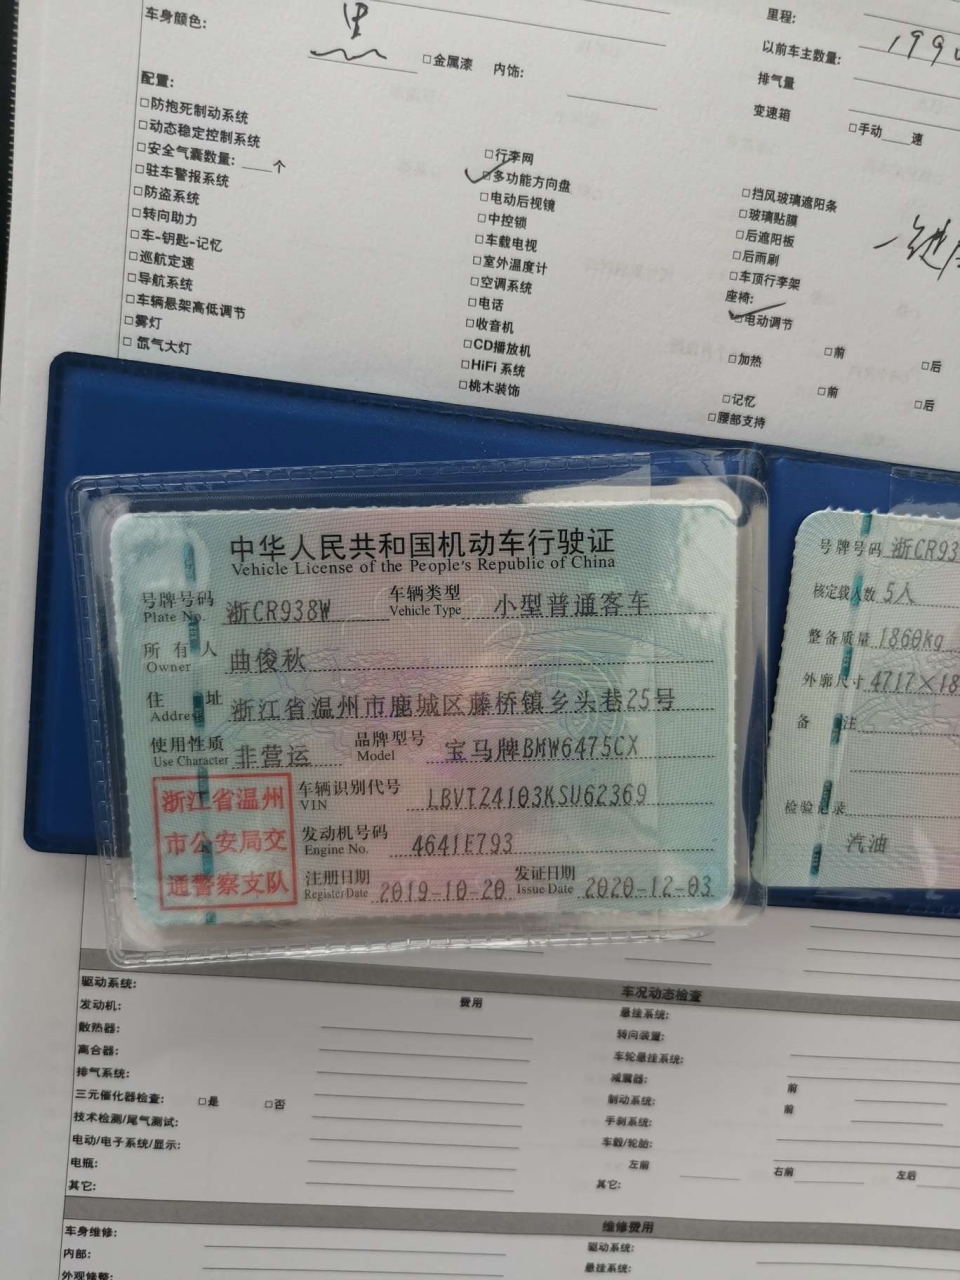 车身颜色: 黑 □金属漆 内饰:
里程:
以前车主数量: 1990
排气量
变速箱 □手动 速
配置:
□防抱死制动系统
□动态稳定控制系统
□安全气囊数量: 个
□驻车警报系统
□防盗系统
□转向助力
□车-钥匙-记忆
□巡航定速
□导航系统
□车辆悬架高低调节
□雾灯
□氙气大灯
□行李网
□多功能方向盘
□电动后视镜
□中控锁
□车载电视
□室外温度计
□空调系统
□电话
□收音机
□CD播放机
□HiFi 系统
□桃木装饰
□挡风玻璃遮阳条
□玻璃贴膜
□后遮阳板
□后雨刷
□车顶行李架
一键
座椅:
□电动调节
□前 □后
□加热
□前 □后
□记忆
□腰部支持
中华人民共和国机动车行驶证
Vehicle License of the People's Republic of China
号牌号码 浙CR938W 车辆类型 小型普通客车
Plate No. Vehicle Type
所有人 曲俊秋
Owner
住址 浙江省温州市鹿城区藤桥镇乡头巷25号
Address
使用性质 非营运 品牌型号 宝马牌BMW6475CX
Use Character Model
浙江省温州
市公安局交
通警察支队
车辆识别代号 LBVTZ4103KSU62369
VIN
发动机号码 4641E793
Engine No.
注册日期 2019-10-20 发证日期 2020-12-03
Register Date Issue Date
号牌号码 浙CR93
核定载人数 5人
整备质量 1860kg
外廓尺寸 4717×18
备注
检验记录
汽油
驱动系统:
费用
发动机:
散热器:
离合器:
排气系统:
三元催化器检查: □是 □否
技术检测/尾气测试:
电动/电子系统/显示:
电瓶:
其它:
车况动态检查
悬挂系统:
转向装置:
车轮悬挂系统:
减震器: 前
制动系统: 前
手刹系统:
车毂/轮胎:
左前 右前 左后
其它:
维修费用
车身维修:
内部:
外观修整:
驱动系统:
悬挂系统: